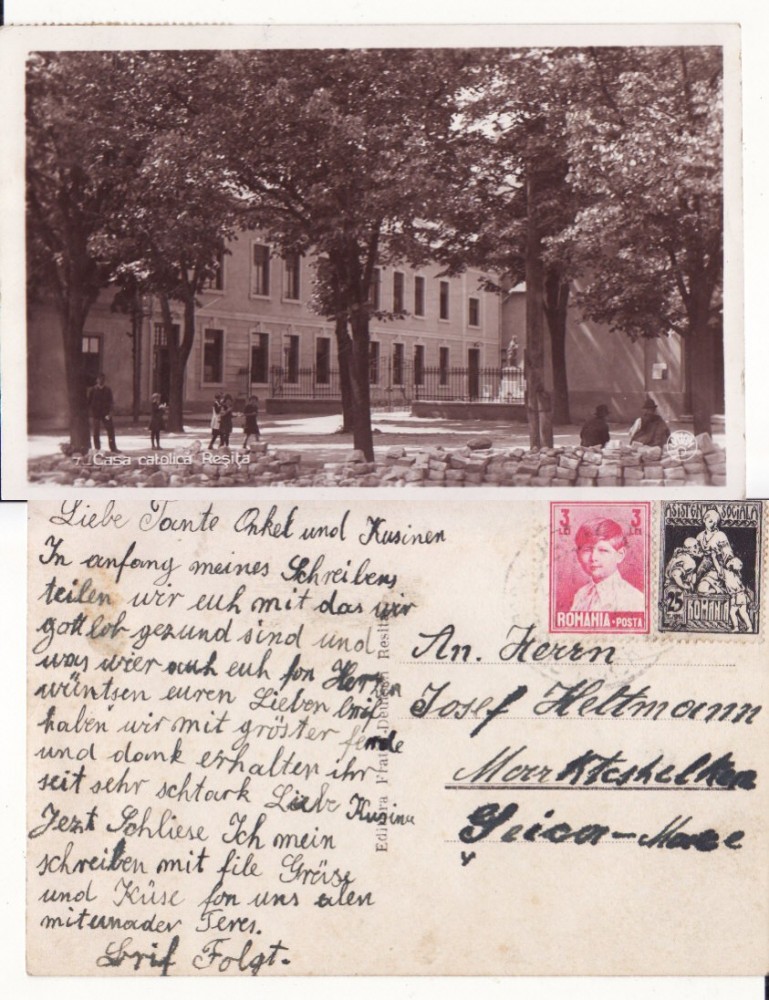 7. Casa catolică Reșița
Liebe Tante Onkel und Kusinen
In anfang meines Schreibens
teilen wir euh mit das wir
gottlob gezund sind und
was wier auh euh fon Herzen
wüntsen euren Lieben brif
haben wir mit gröster ferde
und dank erhalten ihr
seit sehr schtark Liebe Kusine
Jezt Schliese Ich mein
schreiben mit file Grüse
und Küse fon uns alen
miteinader Teres.
Brif Folgt.
Editura Reșița
3 LEI 3 LEI
ROMANIA • POSTA
ASISTENȚA SOCIALA
25
ROMANIA
An. Herrn
Josef Heltmann
Marktschelken
Șeica-Mare